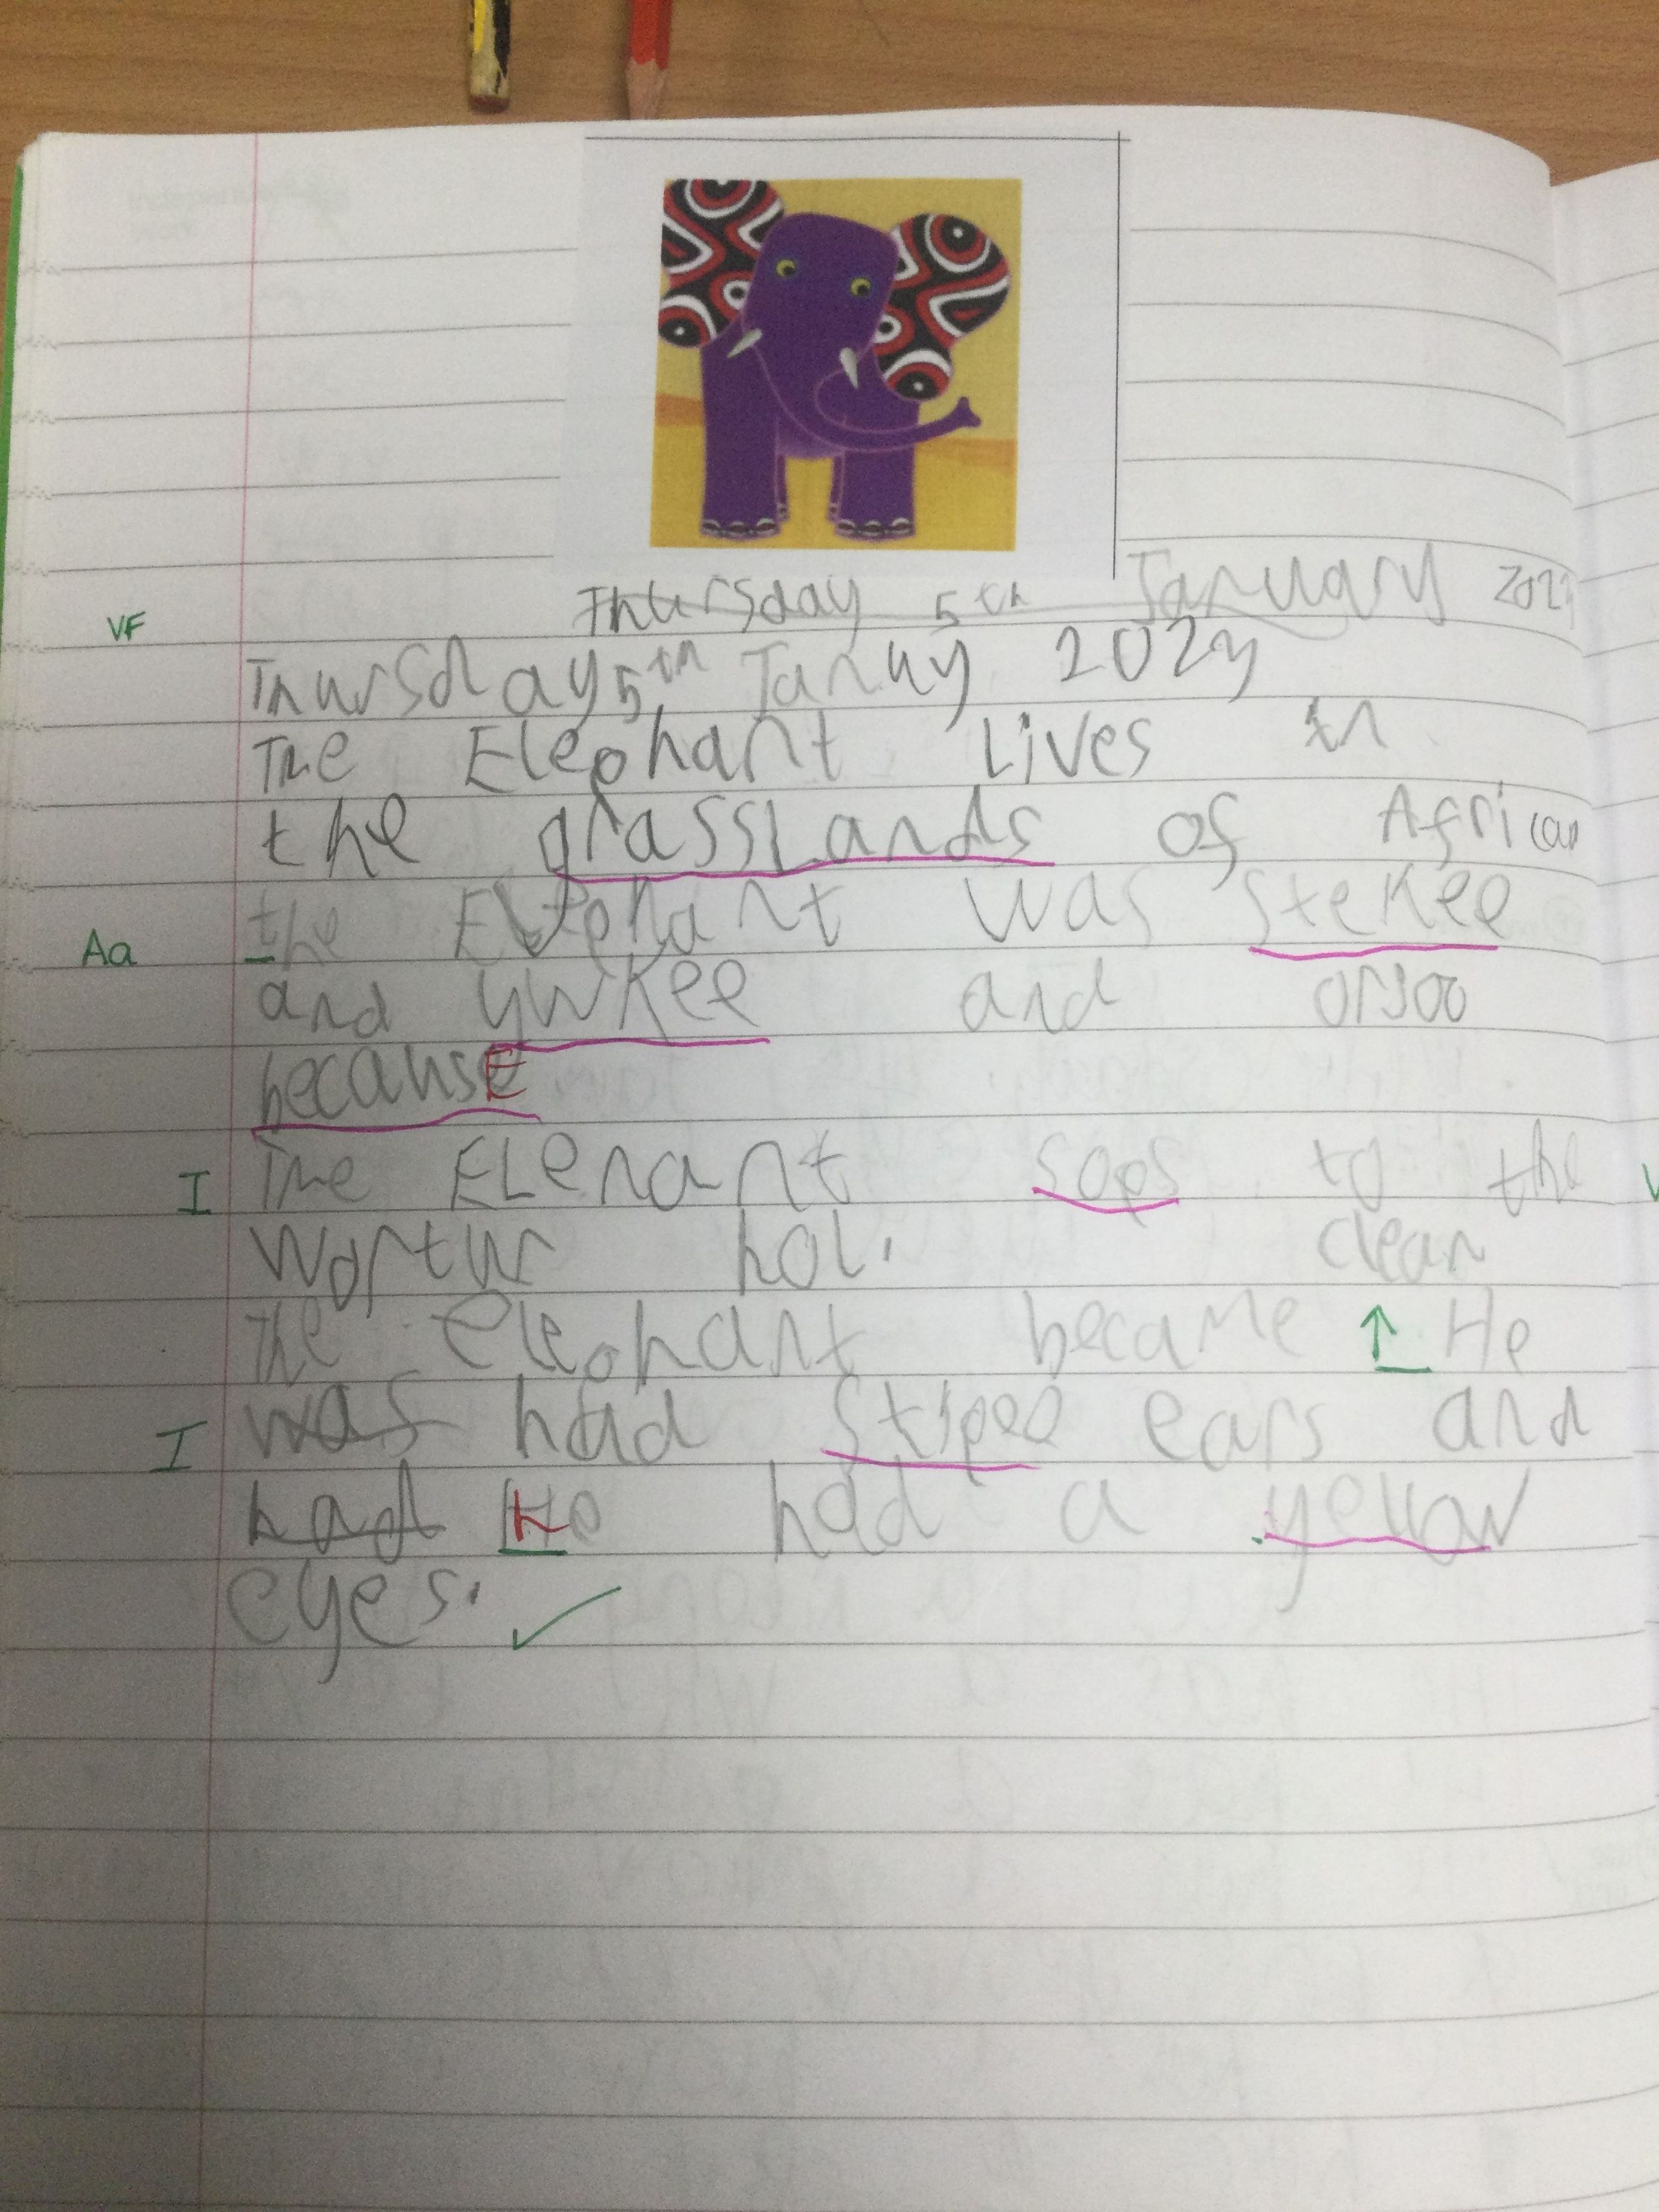 VF
Thursday 5th January 202
Thursday 5th Januy 2023
The Elephant Lives in
the grassLands of African
Aa
the Elephant was stekee
and ywkee and
because
I
The ELenant sops to the
wortur hol. clean
The elephant became ↑ He
I
was had stipee ears and
had he had a yellow
eyes. ✓